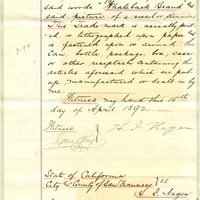 said words "Whaleback Brand" and
said picture of a vessel or steamer
This Trade mark is usually print-
ed or lithographed upon paper
is pasted upon or around the
can, bottle, package, box, case
or other receptacle containing the
articles aforesaid which are put
up, manufactured or dealt in
by me.
Witness my hand this 15th
day of April 1892
Witness
H. I. Nager
State of California
City & County of San Francisco } ss
H. I. Nager